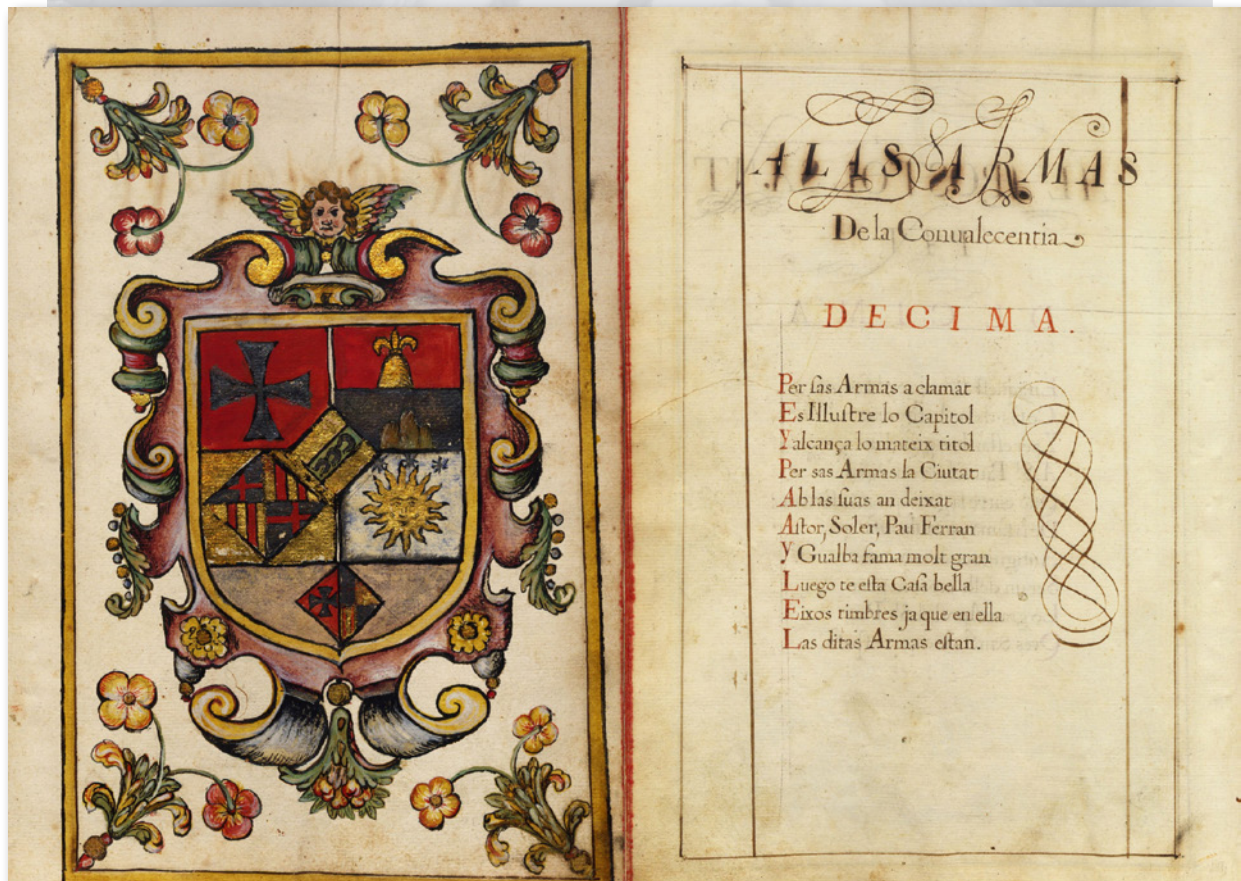 A LAS ARMAS
De la Conualecentia
DECIMA.
Per ſas Armas a clamat
Es Illuſtre lo Capitol
Y alcança lo mateix titol
Per sas Armas la Ciutat
Ab las ſuas an deixat
Aſtor, Soler, Pau Ferran
Y Gualba fama molt gran
Luego te eſta Caſa bella
Eixos timbres ja que en ella
Las ditas Armas eſtan.